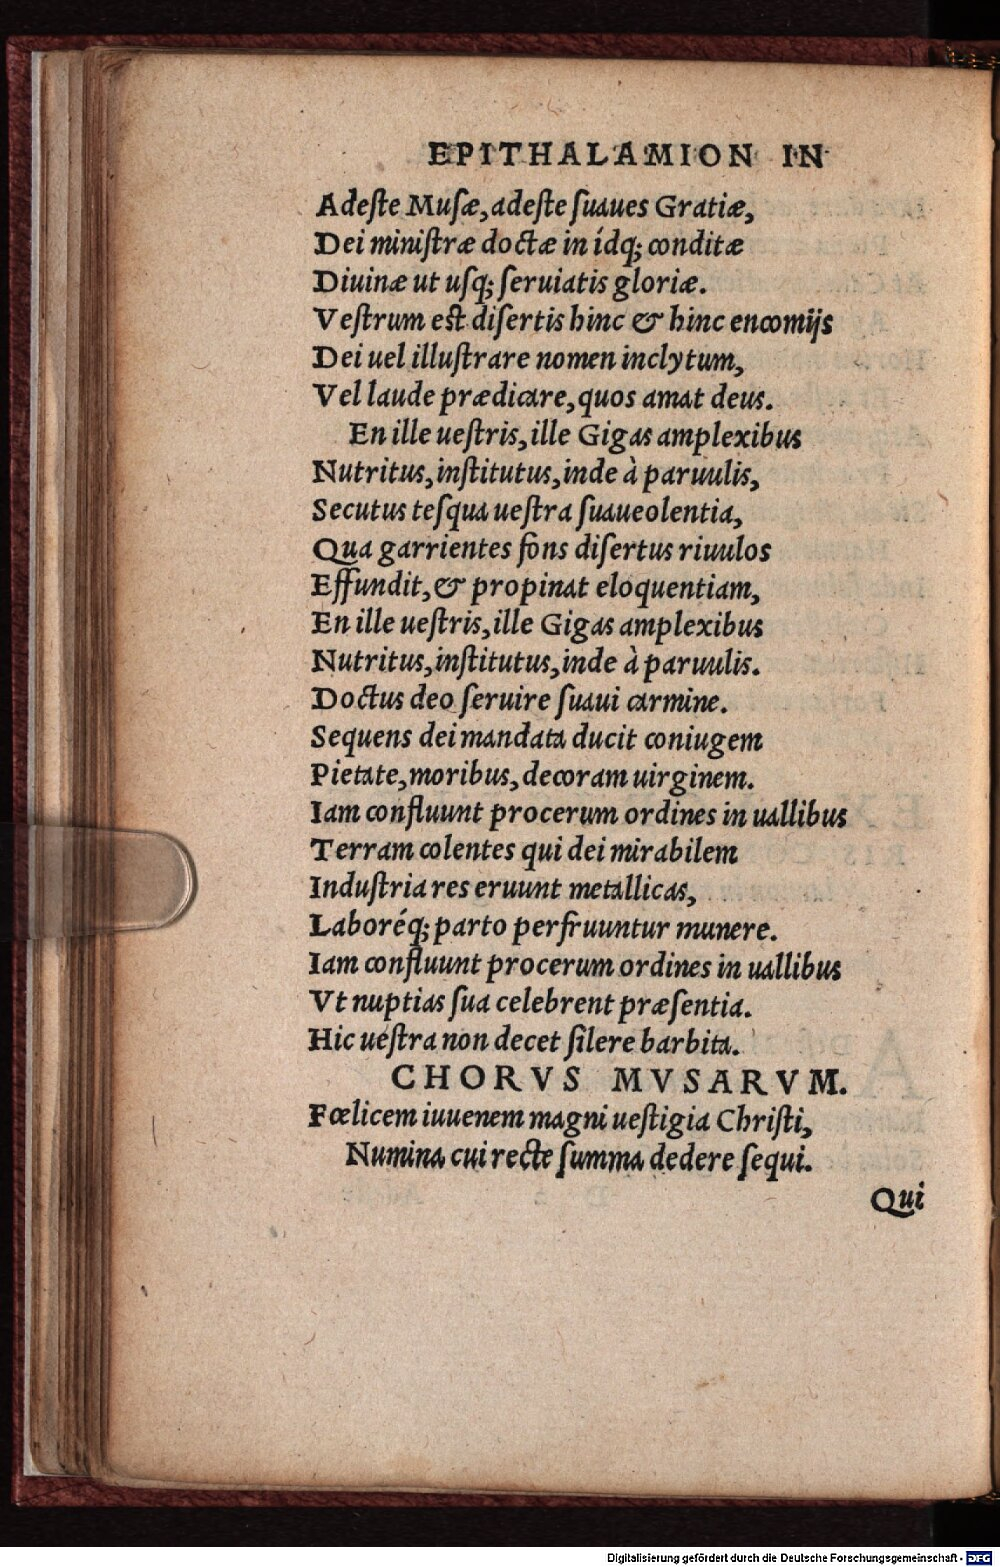 EPITHALAMION IN
Adeste Musæ, adeste suaues Gratiæ,
Dei ministræ doctæ in ídq; conditæ
Diuinæ ut usq; seruiatis gloriæ.
Vestrum est disertis hinc & hinc encomijs
Dei uel illustrare nomen inclytum,
Vel laude prædicare, quos amat deus.
En ille uestris, ille Gigas amplexibus
Nutritus, institutus, inde à paruulis,
Secutus tesqua uestra suaueolentia,
Qua garrientes fons disertus riuulos
Effundit, & propinat eloquentiam,
En ille uestris, ille Gigas amplexibus
Nutritus, institutus, inde à paruulis.
Doctus deo seruire suaui carmine.
Sequens dei mandata ducit coniugem
Pietate, moribus, decoram uirginem.
Iam confluunt procerum ordines in uallibus
Terram colentes qui dei mirabilem
Industria res eruunt metallicas,
Laboréq; parto perfruuntur munere.
Iam confluunt procerum ordines in uallibus
Vt nuptias sua celebrent præsentia.
Hic uestra non decet silere barbita.
CHORVS MVSARVM.
Fœlicem iuuenem magni uestigia Christi,
Numina cui recte summa dedere sequi.
Qui
Digitalisierung gefördert durch die Deutsche Forschungsgemeinschaft - DFG